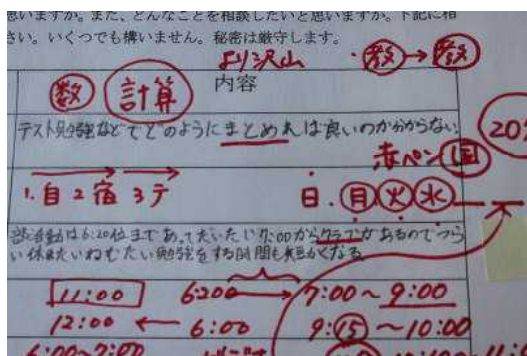 思いますか。また、どんなことを相談したいと思いますか。下記に相
さい。いくつでも構いません。秘密は厳守します。
より沢山 ・教→教
数 計算 内容
テスト勉強などでどのようにまとめれば良いのか分からない。
20
赤ペン 国
1.自 2 宿 3 テ 日.月 火 水
部活動は6:20位まであってだいたい7:00からクラブがあるのでつら
い休みたいねむたい勉強をする時間も短かくなる
11:00 6:00 → 7:00～9:00
12:00 ← 6:00 9:15～10:00
6:00~7:00 11: